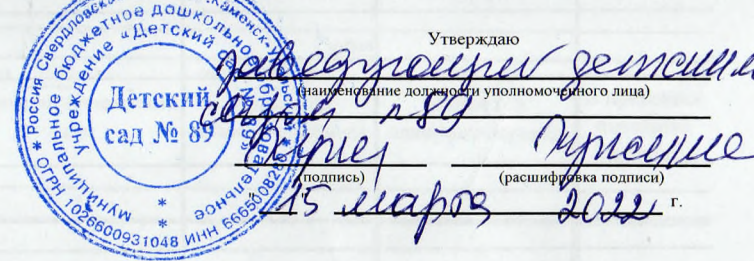 Утверждаю
заведующий детским
(наименование должности уполномоченного лица)
садом №89
(подпись) (расшифровка подписи)
15 марта 2022 г.
Детский
сад № 89
* Россия Свердловская
Каменск-У
муниципальное бюджетное дошкольное образовательное
учреждение «Детский сад № 89»
ОГРН 1026600931048 ИНН